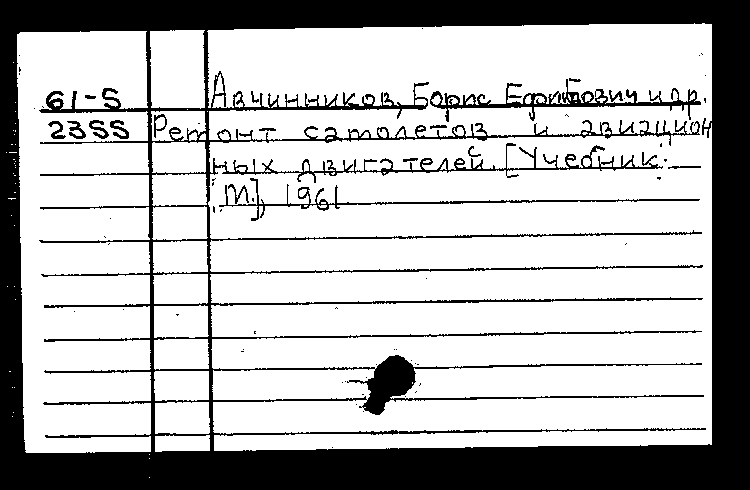 61-5 Авчинников, Борис и др.
2355 Ремонт самолетов и авиацион
ных двигателей. [Учебник.
М.], 1961